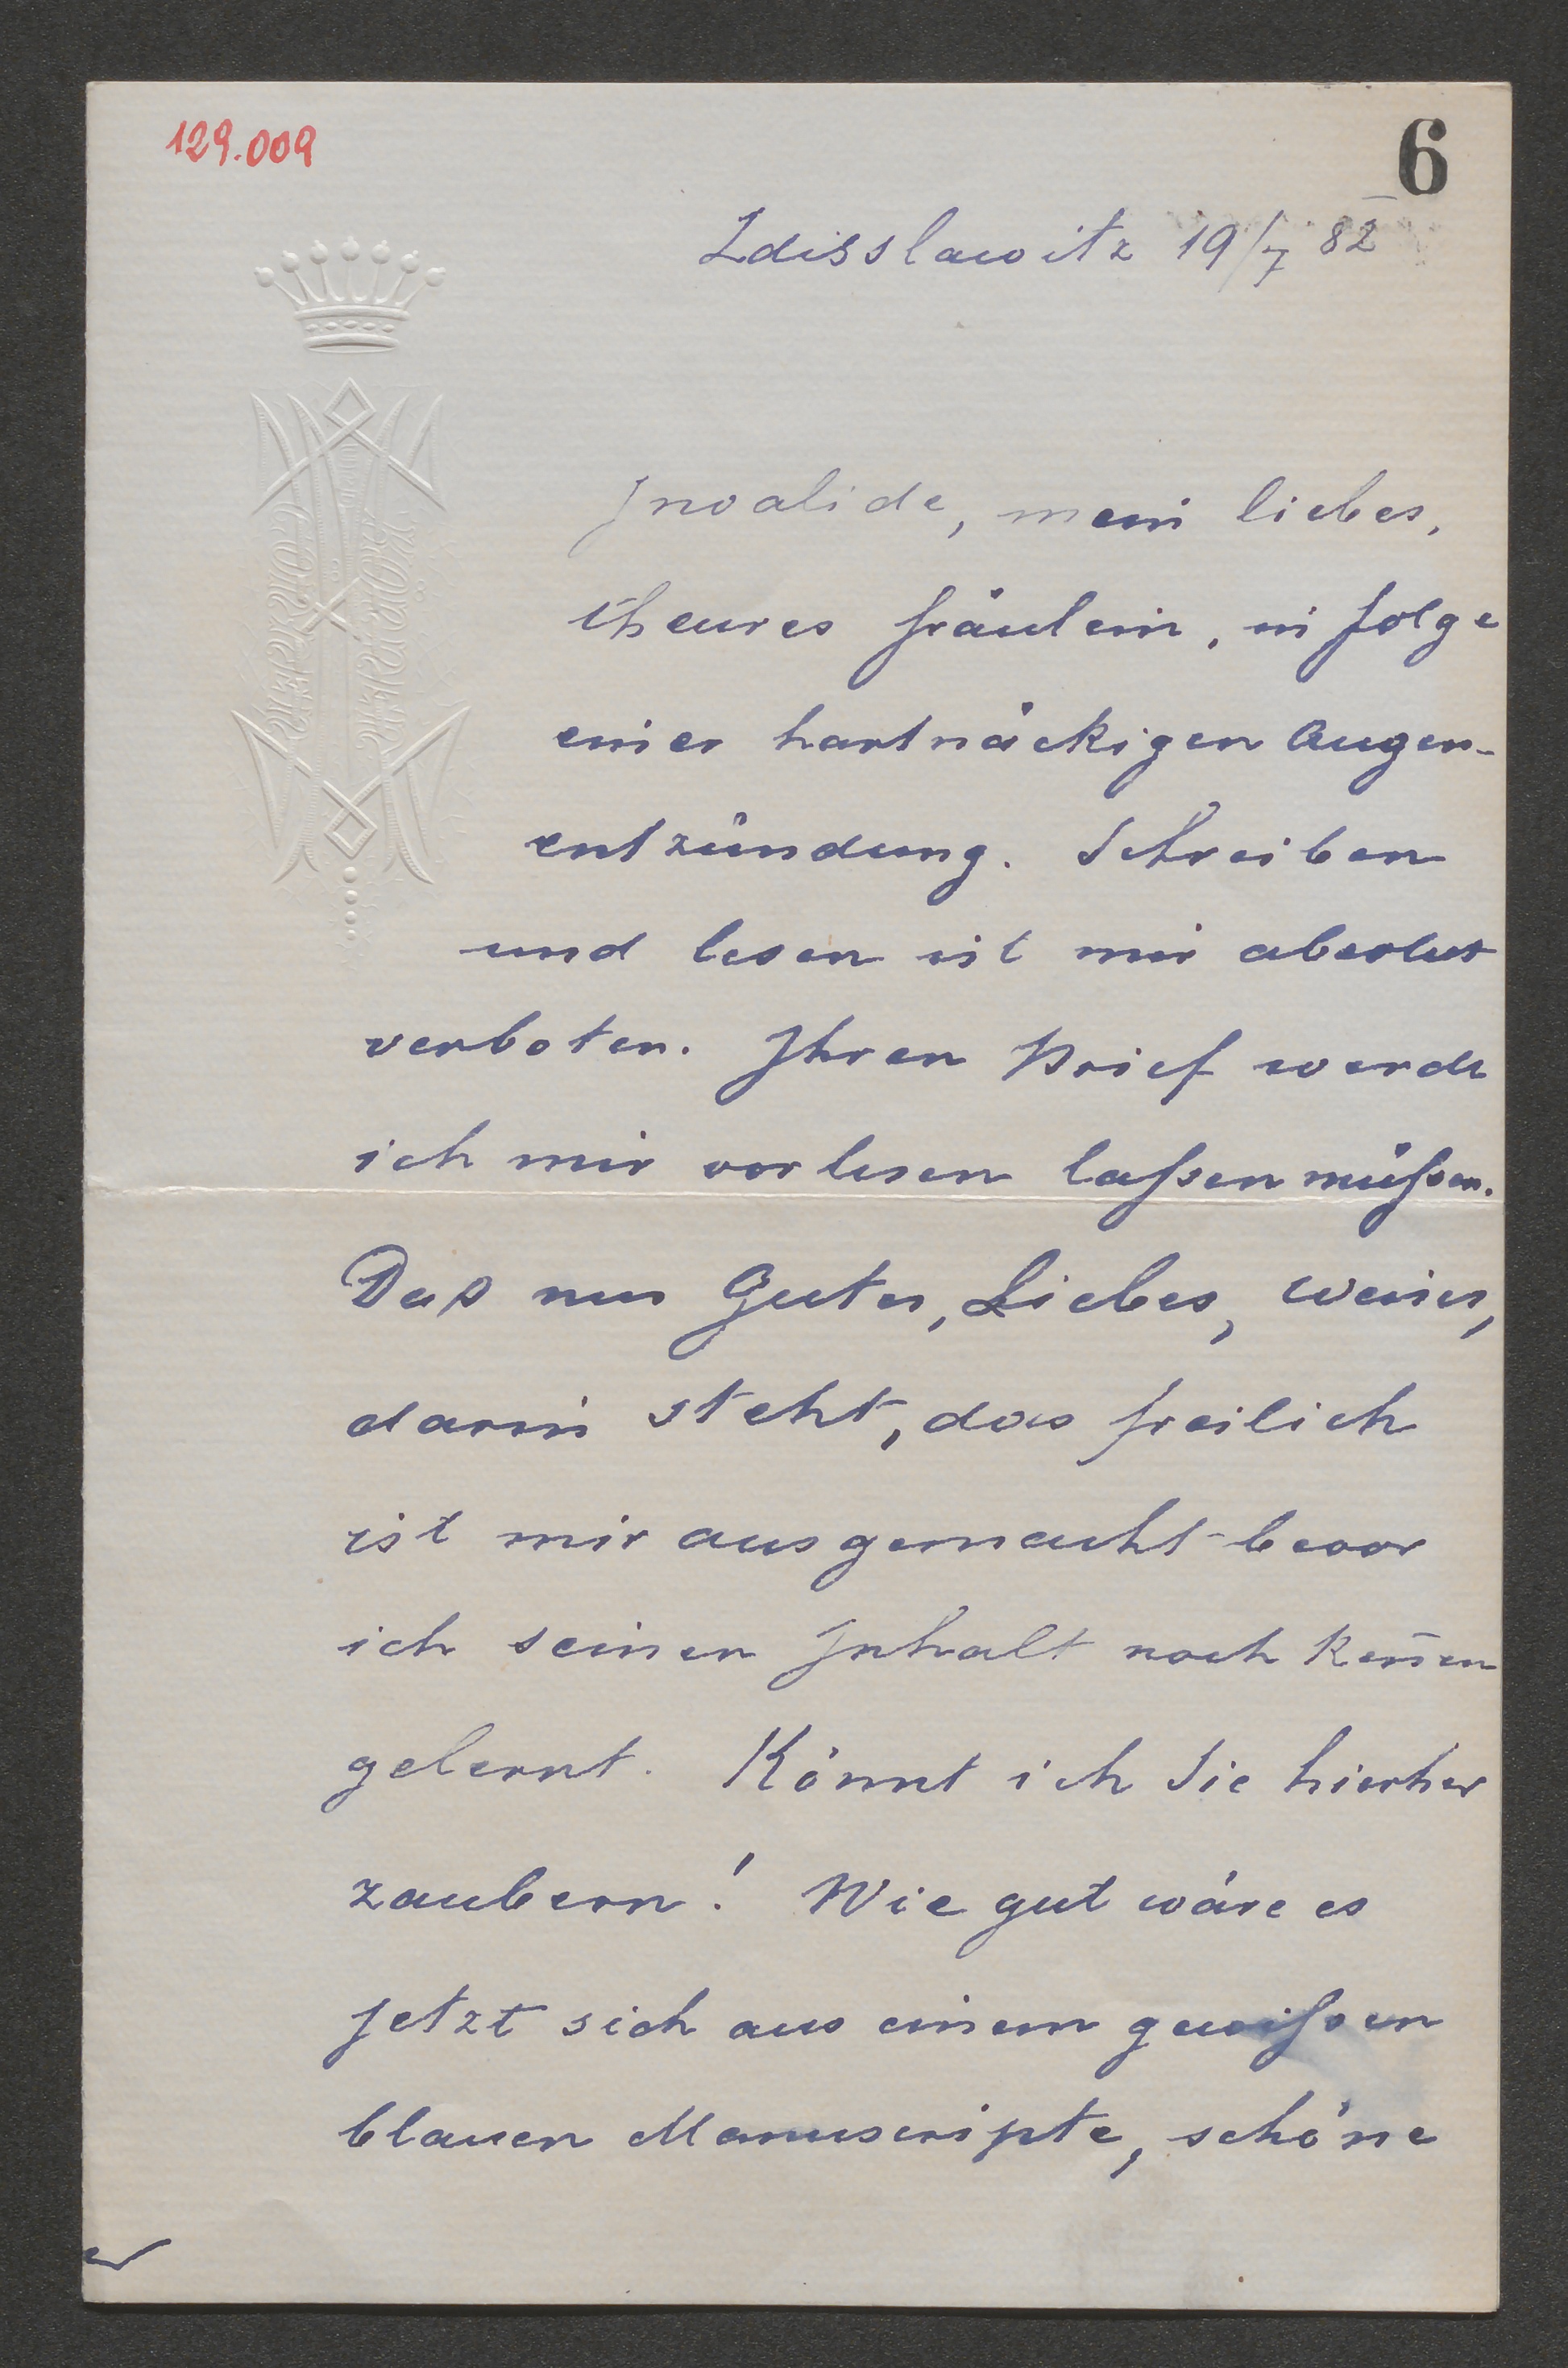 129.009
6
Zdisslawitz 19/7 82
Invalide, mein liebes,
theures Fräulein, in folge
einer hartnäckigen Augen-
entzündung. Schreiben
und lesen ist mir absolut
verboten. Ihren Brief werde
ich mir vorlesen laßen müßen.
Daß nur Gutes, Liebes, weises,
darin steht, das freilich
ist mir ausgemacht bevor
ich seinen Inhalt noch keñen
gelernt. Könnt ich Sie hierher
zaubern! Wie gut wäre es
jetzt sich aus einem gewißen
blauen Manuscripte, schöne